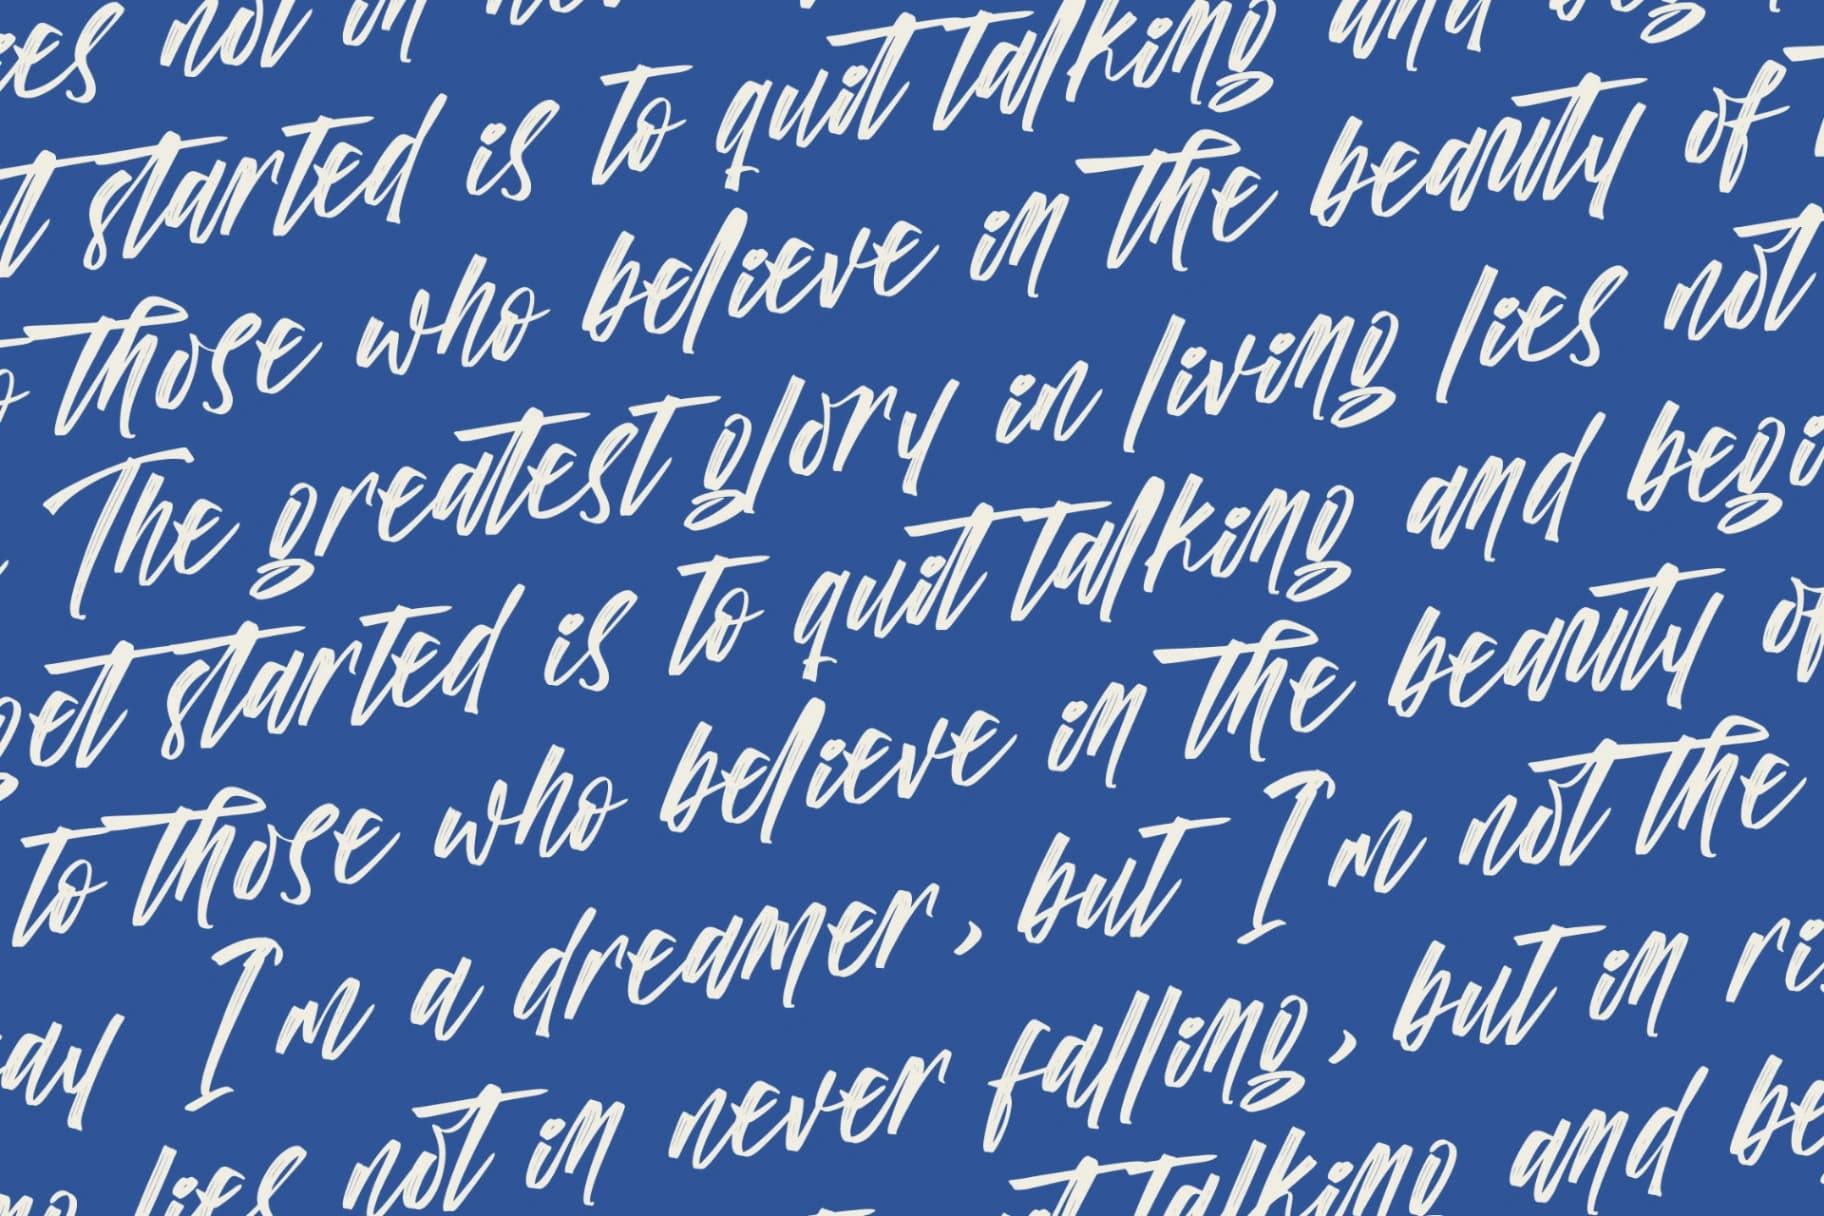 lies not in never
get started is to quit talking and beg
to those who believe in the beauty of
The greatest glory in living lies not
get started is to quit talking and begi
to those who believe in the beauty of
I'm a dreamer, but I'm not the
lies not in never falling, but in ris
talking and be